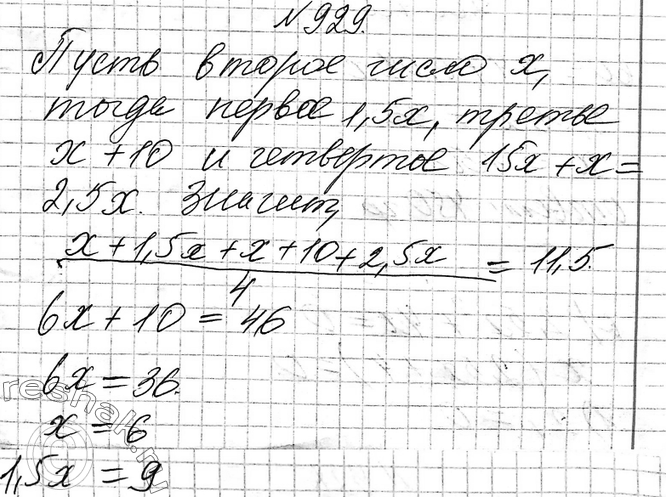 № 929.
Пусть второе число x,
тогда первое 1,5x, третье
x + 10 и четвертое 15x + x =
2,5x. Значит,
x + 1,5x + x + 10 + 2,5x
4
= 11,5.
6x + 10 = 46
6x = 36.
x = 6
1,5x = 9
reshak.ru